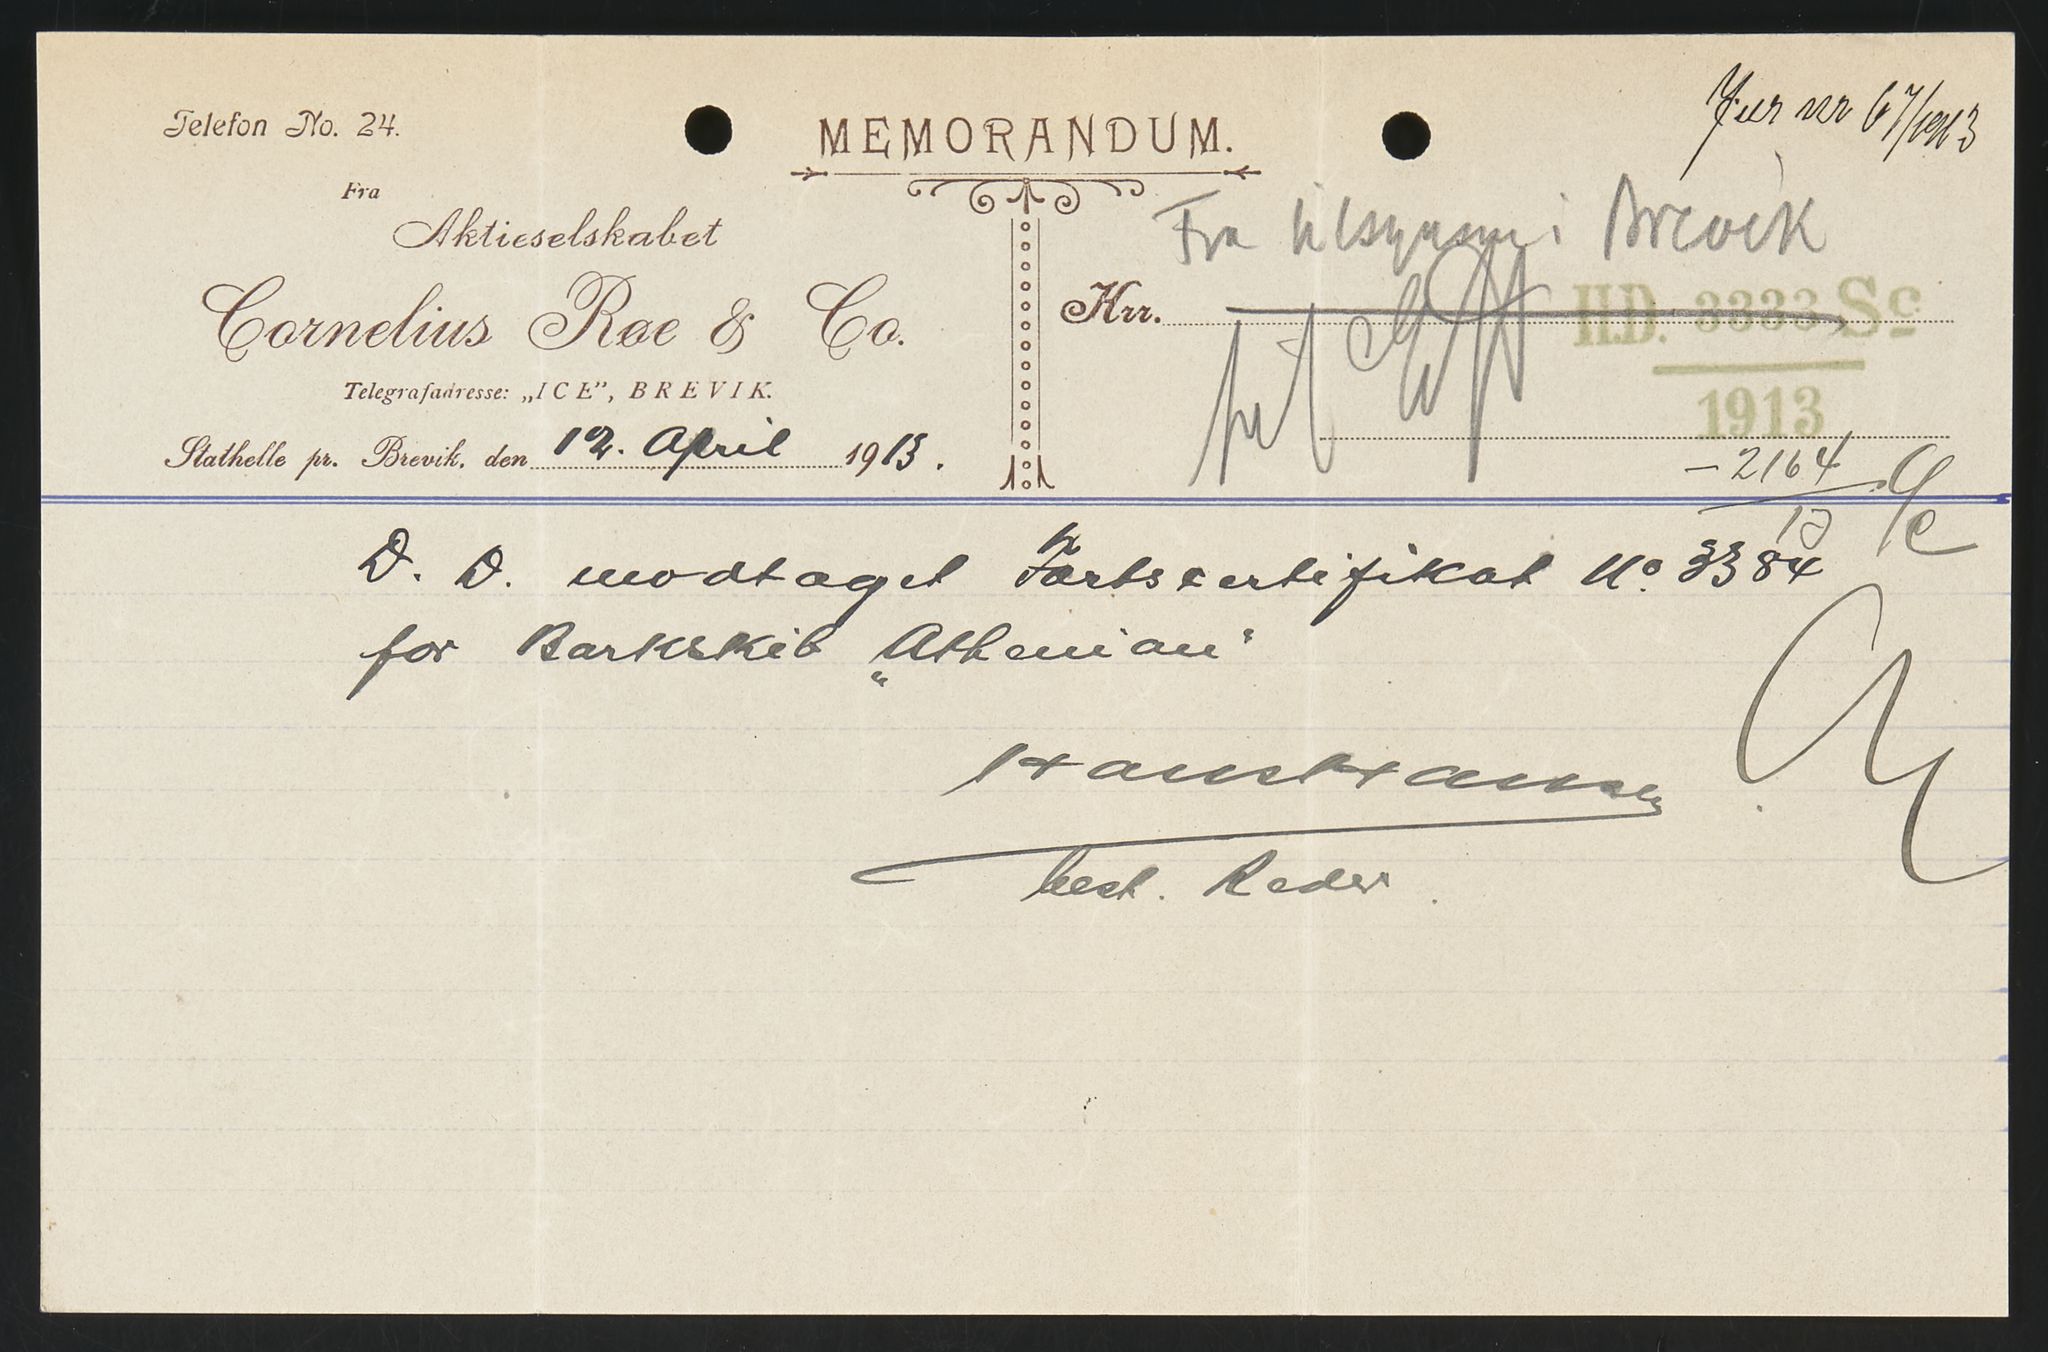 Telefon No. 24.
MEMORANDUM.
Jur nr 67/1913
Fra
Aktieselskabet
Cornelius Roe & Co.
Telegrafadresse: „ICE”, BREVIK.
Stathelle pr. Brevik, den 12. April 1913.
Fra tilsynsm i Brevik
Hrr.
H.D. 3333 Sc
1913
- 2164
13
D. D. modtaget Fartscertifikat No. 3384
for Barkskib „Athenian"
Hans Hansen
best. Reder.